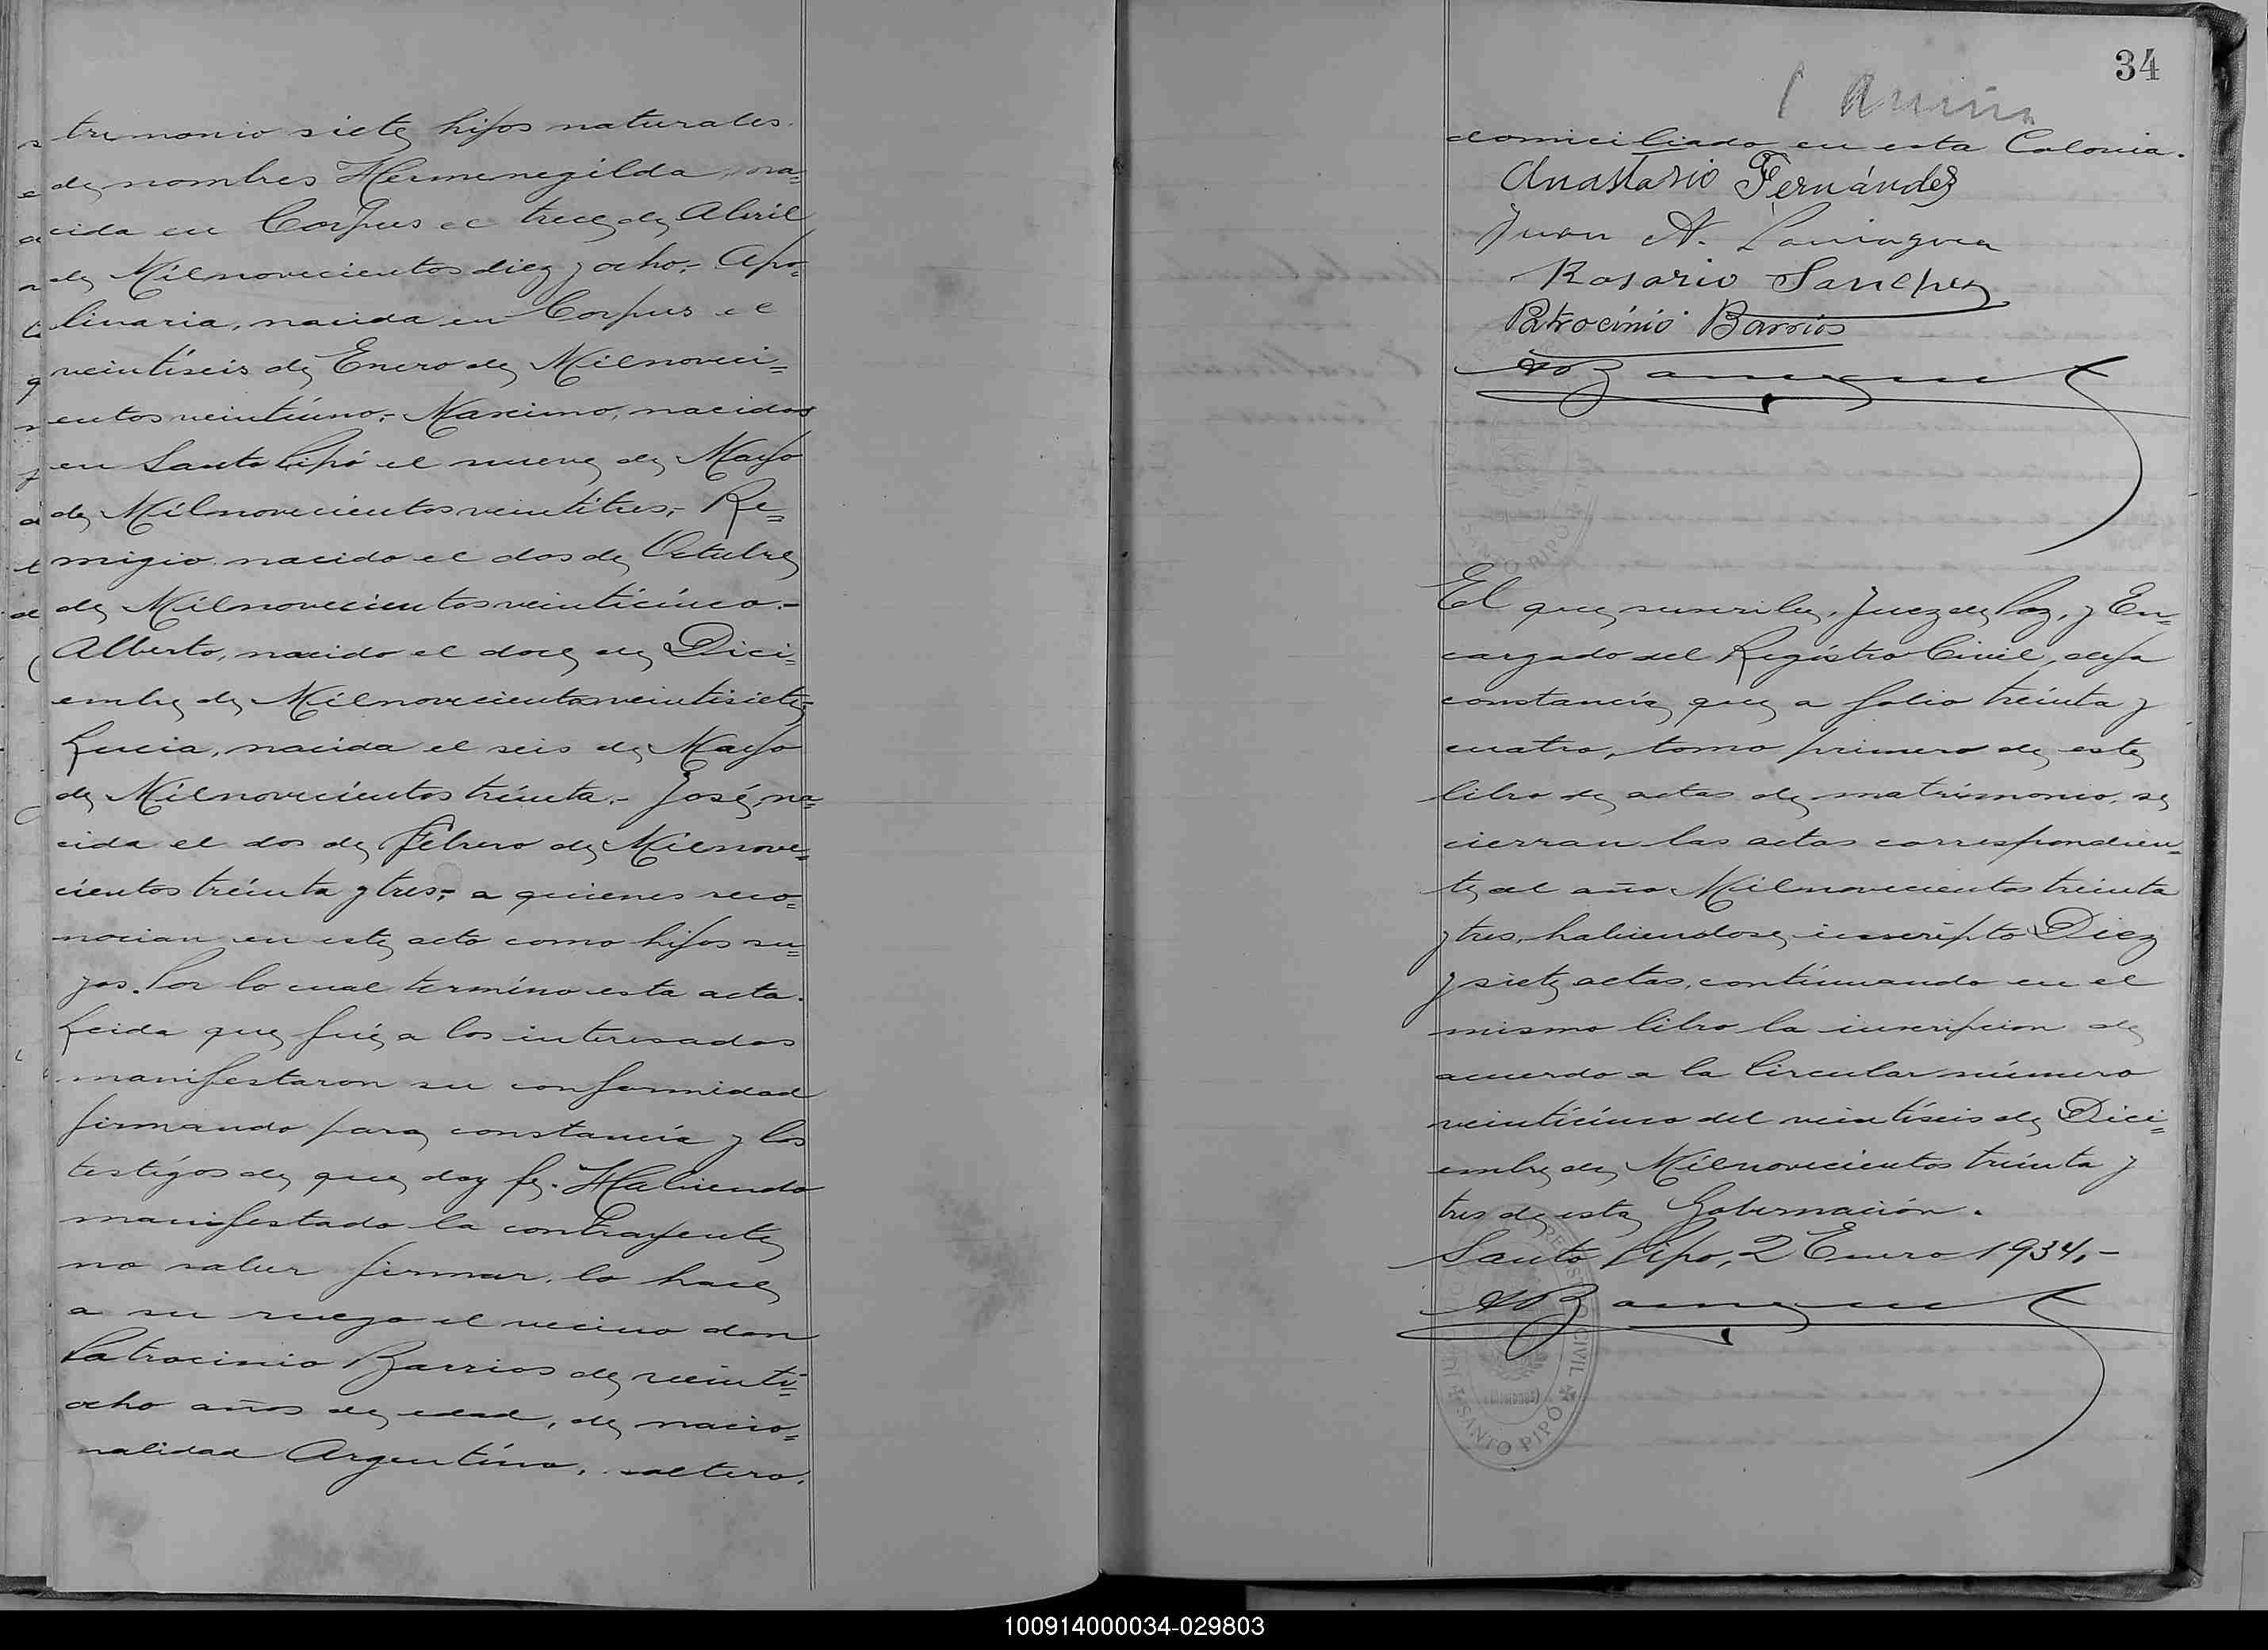 tremonio siete hijos naturales.
de nombres Hermenegilda, na=
cida en Corpus el trece de Abril
de Milnovecientos diez y ocho,- Apo=
linaria, nacida en Corpus el
veintiseis de Enero de Milnoveci=
entos veintiuno,- Maximo, nacidos
en Santo Pipó el nueve de Mayo
de Milnovecientos veintitres,- Re=
migio nacido el dos de Octubre
de Milnovecientos veinticinco.-
Alberto, nacido el doce de Dici=
embre de Milnovecientos veintisiete,
Lucia, nacida el seis de Mayo
de Milnovecientos treinta.- José, na=
cida el dos de Febrero de Milnove=
cientos treinta y tres,- a quienes reco=
nocian en este acto como hijos su=
yos. Por lo cual termino esta acta.
Leida que fué a los interesados
manifestaron su conformidad
firmando para constancia y los
testigos de que doy fe. Habiendo
manifestado la contrayente
no saber firmar, lo hace
a su ruego el vecino don
Patrocinio Barrios de veinti=
ocho años de edad, de nacio=
nalidad Argentino, soltero,
34
domiciliado en esta Colonia.
Anastasio Fernández
Juan A.
Rosario Sanchez
Patrocinio Barrios
El que suscribe, Juez de Paz, y En=
cargado del Registro Civil, deja
constancia que a folio treinta y
cuatro, tomo primero de este
libro de actas de matrimonio, se
cierran las actas correspondien=
te al año Milnovecientos treinta
y tres, habiendose inscripto Diez
y siete actas, continuando en el
mismo libro la inscripcion de
acuerdo a la Circular número
veinticinco del veintiseis de Dici=
embre de Milnovecientos treinta y
tres de esta Gobernación.
Santo Pipo, 2 Enero 1934,-
REGISTRO CIVIL
SANTO PIPÓ
100914000034-029803